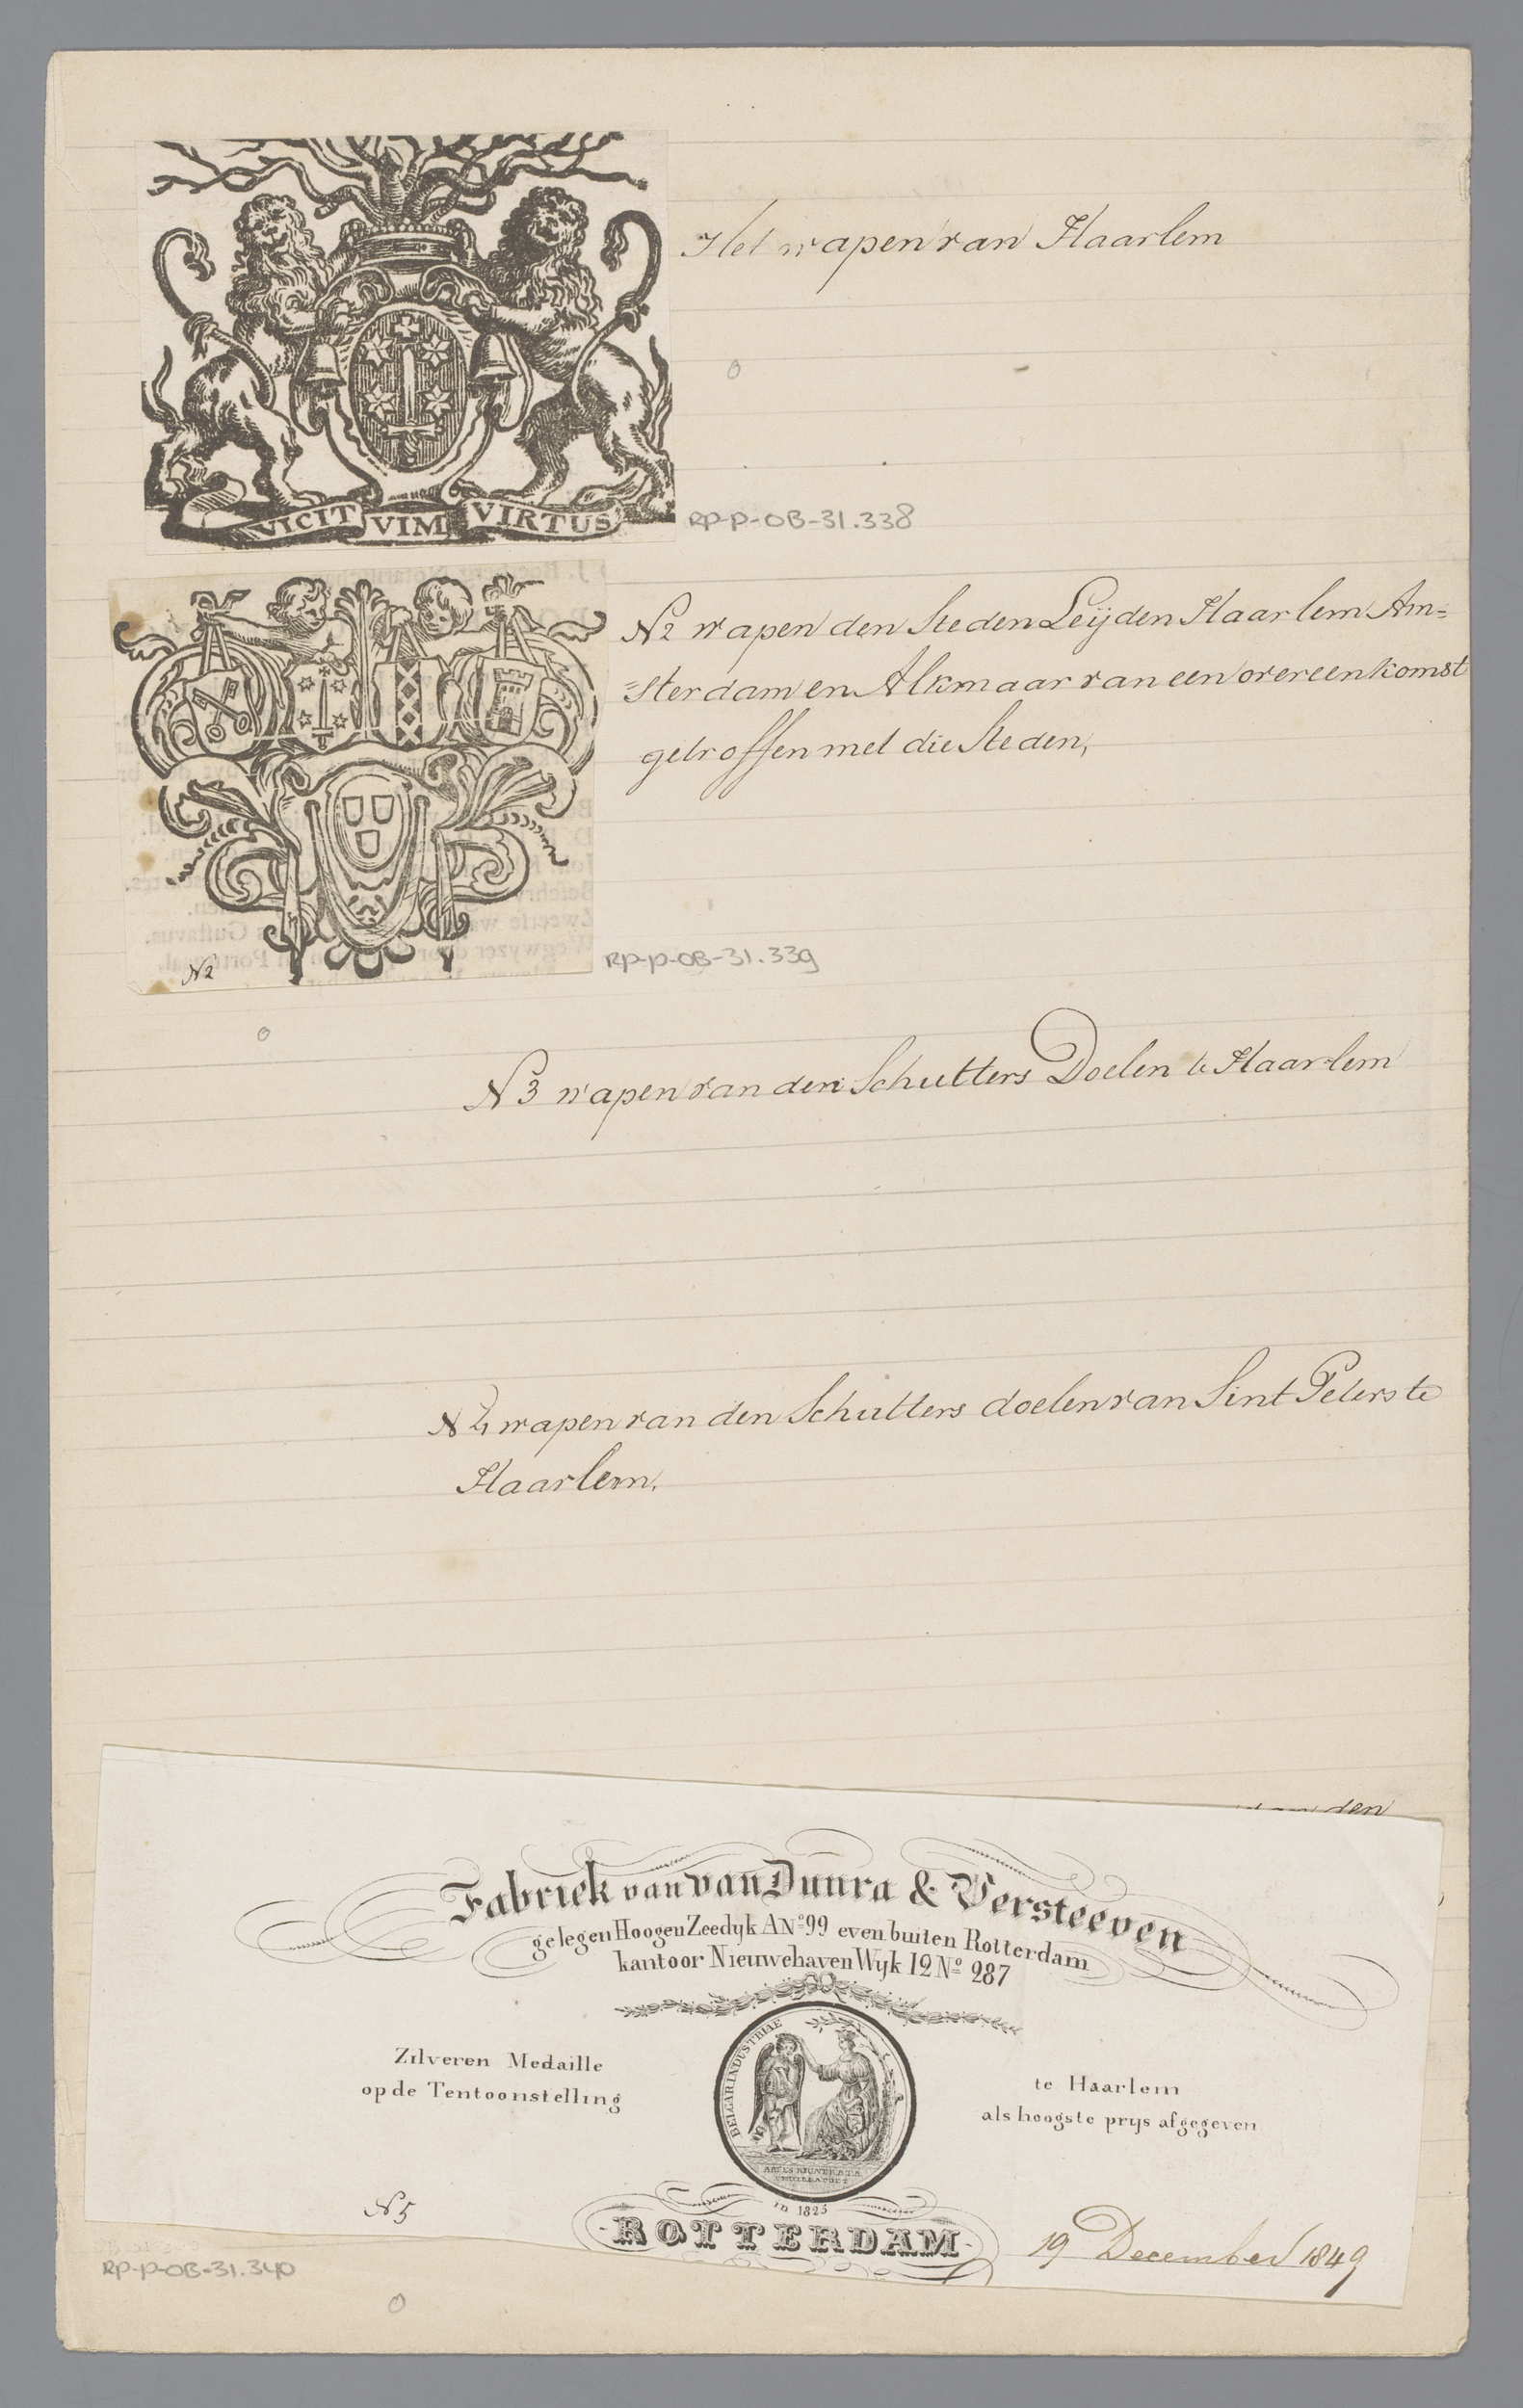 Het wapen van Haarlem
VICIT VIM VIRTUS
RP-P-OB-31.338
N2 wapen den Steden Leijden Haarlem Am=
=sterdam en Alkmaar van een overeenkomst
getroffen met die Steden,
N2
RP-P-OB-31.339
N3 wapen van den Schutters Doelen te Haarlem
N4 wapen van den Schutters doelen van Sint Peters te
Haarlem.
den
Fabriek van van Duura & Versteeven
gelegen Hoogen Zeedyk A No 99 even buiten Rotterdam
kantoor Nieuwehaven Wyk 12 No 287
BELGAR INDUSTRIAE
Zilveren Medaille
op de Tentoonstelling
te Haarlem
als hoogste prys afgegeven
in 1825
ROTTERDAM
N5
19 December 1849
RP-P-OB-31.340